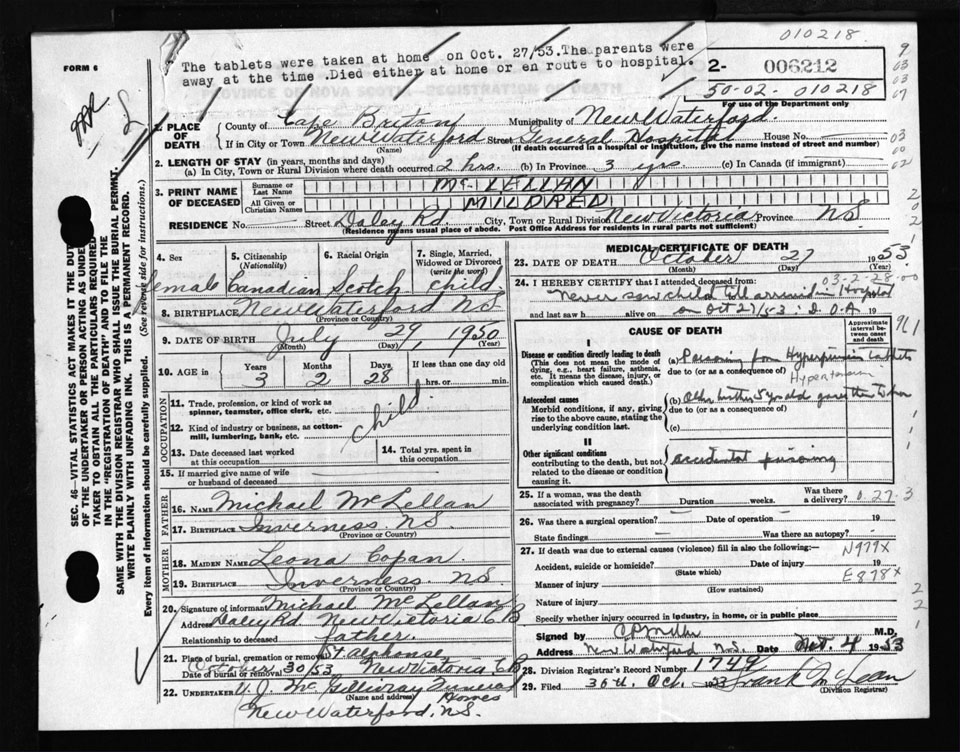 010218
FORM 6
The tablets were taken at home on Oct. 27/53. The parents were
away at the time .Died either at home or en route to hospital.
2- 006212
50-02- 010218
PROVINCE OF NOVA SCOTIA—REGISTRATION OF DEATH
For use of the Department only
1. PLACE OF DEATH
County of Cape Briton Municipality of New Waterford.
If in City or Town New Waterford Street General Hospital House No.
(Name) (If death occurred in a hospital or institution, give the name instead of street and number)
2. LENGTH OF STAY (in years, months and days)
(a) In City, Town or Rural Division where death occurred 2 hrs. (b) In Province 3 yrs. (c) In Canada (if immigrant)
3. PRINT NAME OF DECEASED
Surname or Last Name McLELLAN
All Given or Christian Names MILDRED
RESIDENCE No. Street Daley Rd. City, Town or Rural Division New Victoria Province NS
(Residence means usual place of abode. Post Office Address for residents in rural parts not sufficient)
4. Sex Female
5. Citizenship (Nationality) Canadian
6. Racial Origin Scotch
7. Single, Married, Widowed or Divorced (write the word) child
8. BIRTHPLACE New Waterford NS
(Province or Country)
9. DATE OF BIRTH July 29, 1950
(Month) (Day) (Year)
10. AGE in Years 3 Months 2 Days 28 If less than one day old
hrs. or min.
OCCUPATION
11. Trade, profession, or kind of work as
spinner, teamster, office clerk, etc.
12. Kind of industry or business, as cotton-
mill, lumbering, bank, etc. child.
13. Date deceased last worked
at this occupation
14. Total yrs. spent in
this occupation
15. If married give name of wife
or husband of deceased
FATHER
16. NAME Michael McLellan
17. BIRTHPLACE Inverness NS.
(Province or Country)
MOTHER
18. MAIDEN NAME Leona Copan.
19. BIRTHPLACE Inverness NS.
(Province or Country)
20. Signature of informant Michael McLellan
Address Daley Rd New Victoria CB
Relationship to deceased father.
21. Place of burial, cremation or removal St Alphonse
Date of burial or removal October 30/53 New Victoria CB
22. UNDERTAKER V. J. McGillivray Funeral Homes
(Name and address)
New Waterford, NS.
MEDICAL CERTIFICATE OF DEATH
23. DATE OF DEATH October 27 1953.
(Month) (Day) (Year)
03-2-28-00
24. I HEREBY CERTIFY that I attended deceased from:
Never saw child till arrived in Hospital
and last saw h alive on Oct 27/53 D.O.A. 19
CAUSE OF DEATH
Approximate interval between onset and death
961
I
Disease or condition directly leading to death
(This does not mean the mode of dying, e.g., heart failure, asthenia, etc. It means the disease, injury, or complication which caused death.)
(a) Poisoning from Hypertension tablets
due to (or as a consequence of)
Hypertension
Antecedent causes
Morbid conditions, if any, giving rise to the above cause, stating the underlying condition last.
(b) Older brother 5 yrs old gave them to her
due to (or as a consequence of)
(c)
II
Other significant conditions
contributing to the death, but not related to the disease or condition causing it.
accidental poisoning
25. If a woman, was the death
associated with pregnancy? Duration weeks. Was there a delivery? 0.27.3
26. Was there a surgical operation? Date of operation 19
State findings Was there an autopsy?
27. If death was due to external causes (violence) fill in also the following:— N979X
Accident, suicide or homicide? Date of injury 19
(State which)
E878X
Manner of injury
(How sustained)
Nature of injury
Specify whether injury occurred in industry, in home, or in public place
Signed by M.D.
Address New Waterford N.S. Date Nov. 4 1953
28. Division Registrar's Record Number 1749
29. Filed 30th Oct. 1953 Frank McLean
(Division Registrar)
SEC. 46—VITAL STATISTICS ACT MAKES IT THE DUTY
OF THE UNDERTAKER OR PERSON ACTING AS UNDERTAKER
TO OBTAIN ALL THE PARTICULARS REQUIRED
IN THE "REGISTRATION OF DEATH" AND TO FILE THE
SAME WITH THE DIVISION REGISTRAR WHO SHALL ISSUE THE BURIAL PERMIT.
WRITE PLAINLY WITH UNFADING INK. THIS IS A PERMANENT RECORD.
Every item of information should be carefully supplied. (See reverse side for instructions.)